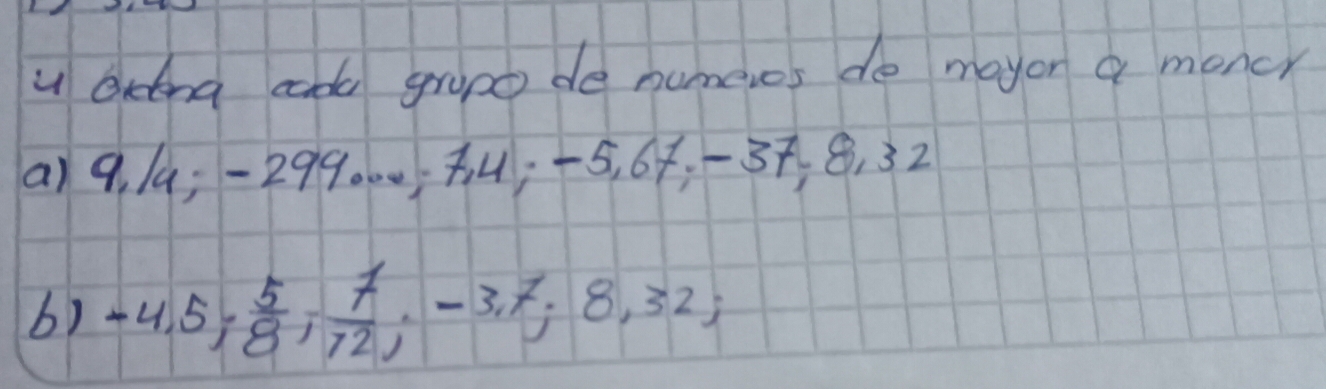 4 Ordena cada grupo de numeros de mayor a menor
a) 9,14; -299....; 7,4; -5,67; -37; 8,32
b) -4,5; 5/8; 7/12; -3,7; 8,32;